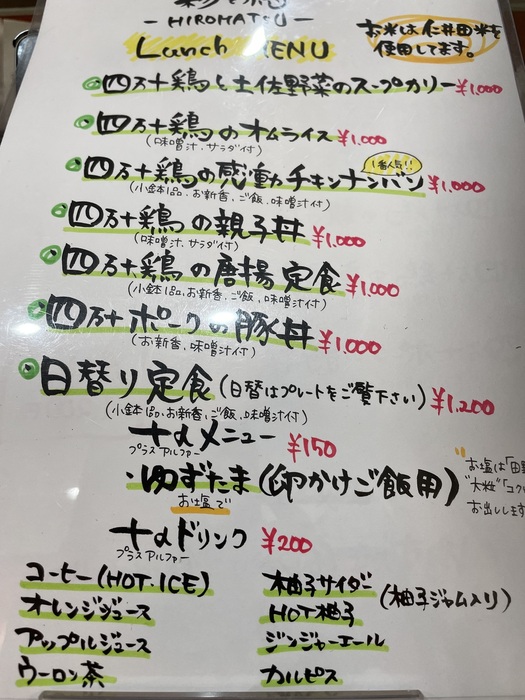 -HIROMATSU-
Lunch MENU
お米は仁井田米を
使用してます。
四万十鶏と土佐野菜のスープカリー ¥1,000
四万十鶏のオムライス ¥1,000
(味噌汁、サラダ付)
1番人気!!
四万十鶏の感動チキンナンバン ¥1,000
(小鉢1品、お新香、ご飯、味噌汁付)
四万十鶏の親子丼 ¥1,000
(味噌汁、サラダ付)
四万十鶏の唐揚定食 ¥1,000
(小鉢1品、お新香、ご飯、味噌汁付)
四万十ポークの豚丼 ¥1,000
(お新香、味噌汁付)
日替り定食(日替はプレートをご覧下さい) ¥1,200
(小鉢1品、お新香、ご飯、味噌汁付)
+αメニュー ¥150
プラスアルファー
・ゆずたま(卵かけご飯用)
お塩で
お塩は「田野
"大粒"「コク
お出しします
+αドリンク ¥200
プラスアルファー
コーヒー(HOT・ICE)
オレンジジュース
アップルジュース
ウーロン茶
柚子サイダー
HOT柚子
(柚子ジャム入り)
ジンジャーエール
カルピス